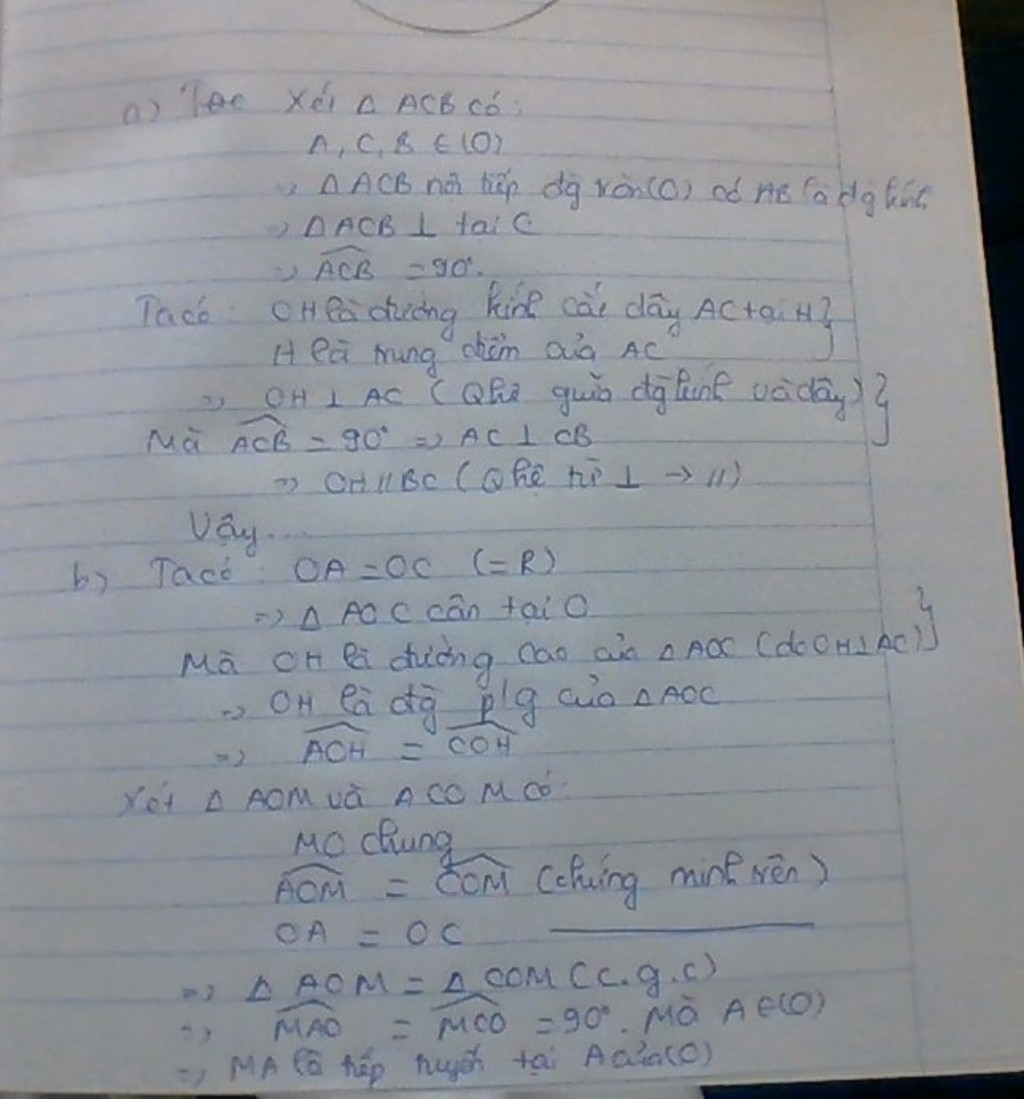 a) Xét Δ ACB có:
A, C, B ∈ (O)
=> Δ ACB nội tiếp đg tròn (O) có AB là đg kính
=> Δ ACB ⊥ tại C
=> ACB = 90°.
Ta có: OH là đường kính cắt dây AC tại H }
H là trung điểm của AC
=> OH ⊥ AC (Qhệ giữa đg kính và dây) }
Mà ACB = 90° => AC ⊥ CB
=> OH // BC (Qhệ từ ⊥ → //)
Vậy....
b) Ta có: OA = OC (=R)
=> Δ AOC cân tại O
Mà OH là đường cao của Δ AOC (do OH ⊥ AC) }
=> OH là đg p/g của Δ AOC
=> AOH = COH
Xét Δ AOM và Δ COM có:
MO chung
AOM = COM (chứng minh trên)
OA = OC
=> Δ AOM = Δ COM (c.g.c)
=> MAO = MCO = 90°. Mà A ∈ (O)
=> MA là tiếp tuyến tại A của (O)